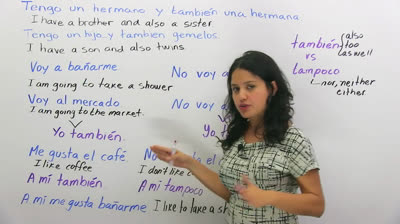 Tengo un hermano y también una hermana
I have a brother and also a sister.
Tengo un hijo y también gemelos.
I have a son and also twins.
Voy a bañarme
I am going to take a shower
Voy al mercado.
I am going to the market.
Yo también
Me gusta el café.
I like coffee
A mí también
A mí me gusta bañarme
I like to take a
No voy a
No
el
I don't like c
A mí tampoco
también
vs
tampoco
also
too
as well
nor, neither
either